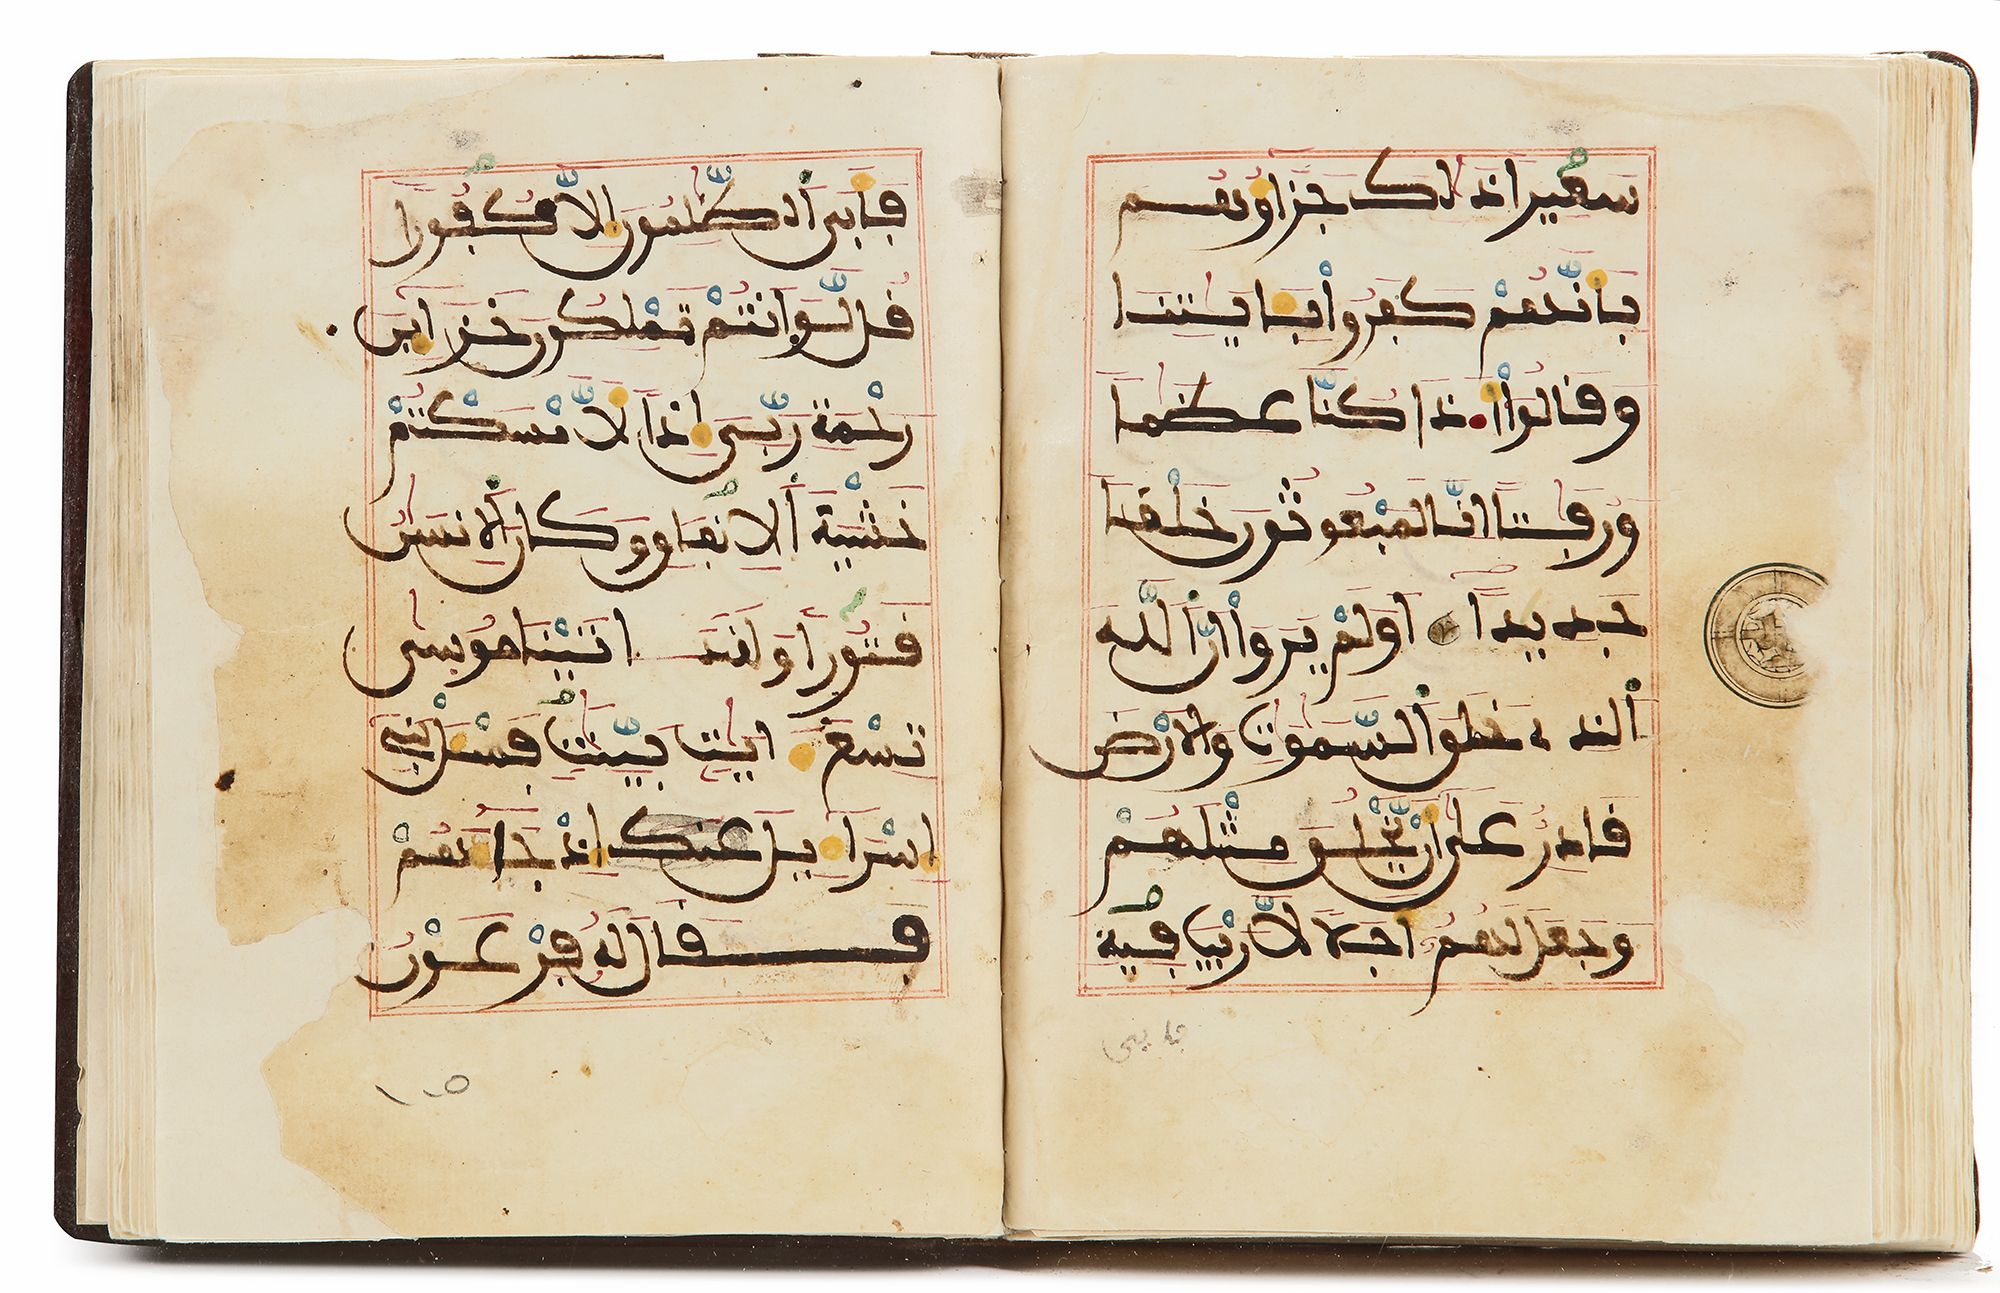 سعيرا ذلك جزاوهم
بأنهم كفروا بايتنا
وقالوا اذا كنا عظما
ورفتا انا لمبعوثون خلقا
جديدا اولم يروا ان الله
الذى خلق السموت والارض
قادر على ان يخلق مثلهم
وجعل لهم اجلا لا ريب فيه
فابى
فابى الظلمون الا كفورا
قل لو انتم تملكون خزاين
رحمة ربى اذا لامسكتم
خشية الانفاق وكان الانسن
قتورا ولقد اتينا موسى
تسع ايت بينت فسل بنى
اسرايل عنك اذ جاهم
فـقال له فرعون